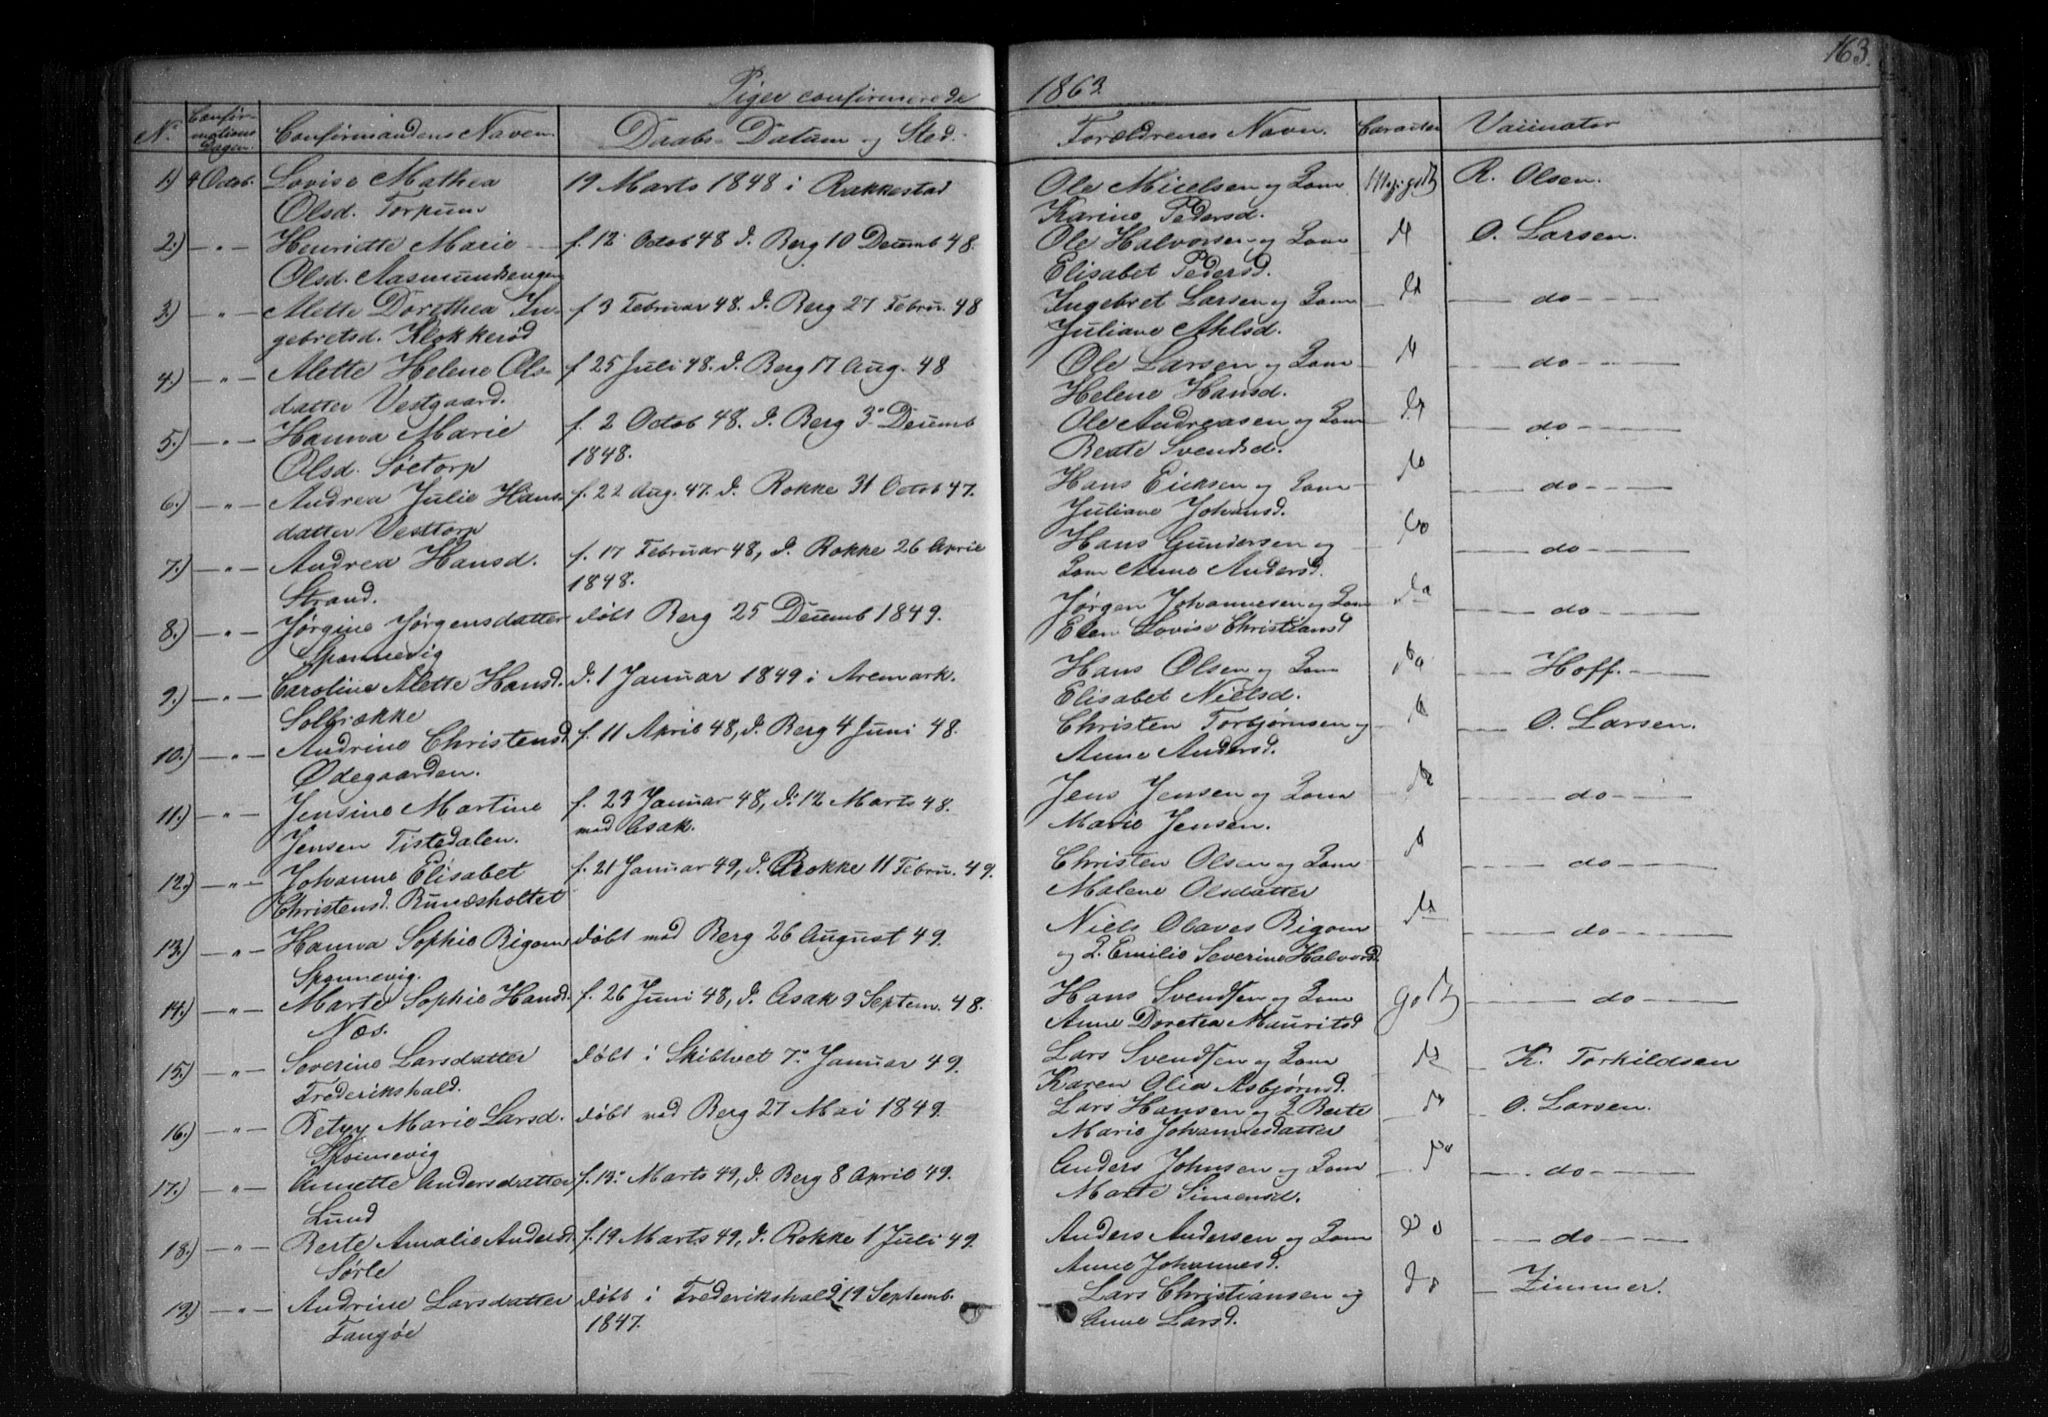 163.
Piger confirmerede 1863
No Confirmations Dagen Confirmandens Navn Daabs-Datum og Sted. Forældrenes Navn. Caracter Vaccinator
1) 4 Octob. Lovise Mathea 19 Marts 1848 i Rakkestad Ole Micelsen og Kone R. Olsen.
Olsd. Torpum Karine Pedersd.
2.) —"— Henriette Marie f. 12 Octob 48 d. Berg 10 Decemb 48 Ole Halvorsen og Kone O. Larsen.
Olsd. Aasmundsengen Elisabet Pedersd.
3.) —"— Mette Dorthea In- f 3 Februar 48. d. Berg 27 Febru. 48 Ingebret Larsen og Kone — do —
gebretsd. Klokkerød Juliane Ahlsd.
4.) —"— Alette Helene Ols- f 25 Juli 48. d. Berg 17 Aug. 48 Ole Larsen og Kone — do —
datter Vestgaard. Helene Hansd.
5.) —"— Hanna Marie f. 2 Octob 48. d. Berg 3. Decemb Ole Andreasen og Kone — do —
Olsd. Søetorp 1848. Berte Svendsd.
6.) —"— Andrea Julie Hans- f. 22 Aug. 47. d. Rokke 31 Octob 47. Hans Ericksen og Kone — do —
datter Vesttorp Juliane Johansd.
7.) —"— Andrea Hansd. f. 17 Februar 48, d. Rokke 26 April Hans Gundersen og — do —
Strand. 1848. Kone Anne Andersd.
8.) —"— Jørgine Jørgensdatter døbt Berg 25 Decemb 1849. Jørgen Johannesen og Kone — do —
Sponnevig Elen Lovise Christiansd
9.) —"— Caroline Alette Hansd. d. 1 Januar 1849 i Aremark. Hans Olsen og Kone — Hoff. —
Solbrække Elisabet Nielsd.
10.) —"— Andrine Christensd f. 11 April 48, d. Berg 4 Juni 48. Christen Torbjørnsen og — O. Larsen.
Ødegaarden. Anne Andersd.
11.) —"— Jensine Martine f. 23 Januar 48, d. 12 Marts 48. Jens Jensen og Kone — do —
Jensen Tistedalen. ved Asak. Marie Jensen.
12.) —"— Johanne Elisabet f. 21 Januar 49, d. Rokke 11 Febru. 49. Christen Olsen og Kone — do —
Christensd. Bunæsholtet Malene Olsdatter
13.) —"— Hanna Sophie Bigom døbt ved Berg 26 August 49. Niels Olaves Bigom — do —
Sponnevig. og K. Emilie Severine Halvord.
14.) —"— Marte Sophie Hansd. f. 26 Juni 48, d. Asak 9 Septem. 48. Hans Svendsen og Kone — do —
Næs. Anne Doretea Mauritsd
15.) —"— Severine Larsdatter døbt i Skibtvet 7. Januar 49. Lars Svendsen og Kone — K. Torkildsen
Frederikshald. Karen Olia Asbjørnsd.
16.) —"— Betzy Marie Larsd. døbt ved Berg 27 Mai 1849. Lars Hansen og K Berte O. Larsen.
Sponnevig Marie Johannesdatter
17.) —"— Annette Andersdatter f. 13. Marts 49, d. Berg 8 April 49. Anders Johnsen og Kone — do —
Lund Marte Simensd.
18.) —"— Berte Amalie Andersd f. 19 Marts 49, d. Rokke 1 Juli 49. Anders Andersen og Kone — do —
Sørle Anne Johannesd.
19.) —"— Andrine Larsdatter døbt i Frederikshald 19 Septemb. Lars Christiansen og — Zimmer.
Tangøe 1847. Anne Larsd.